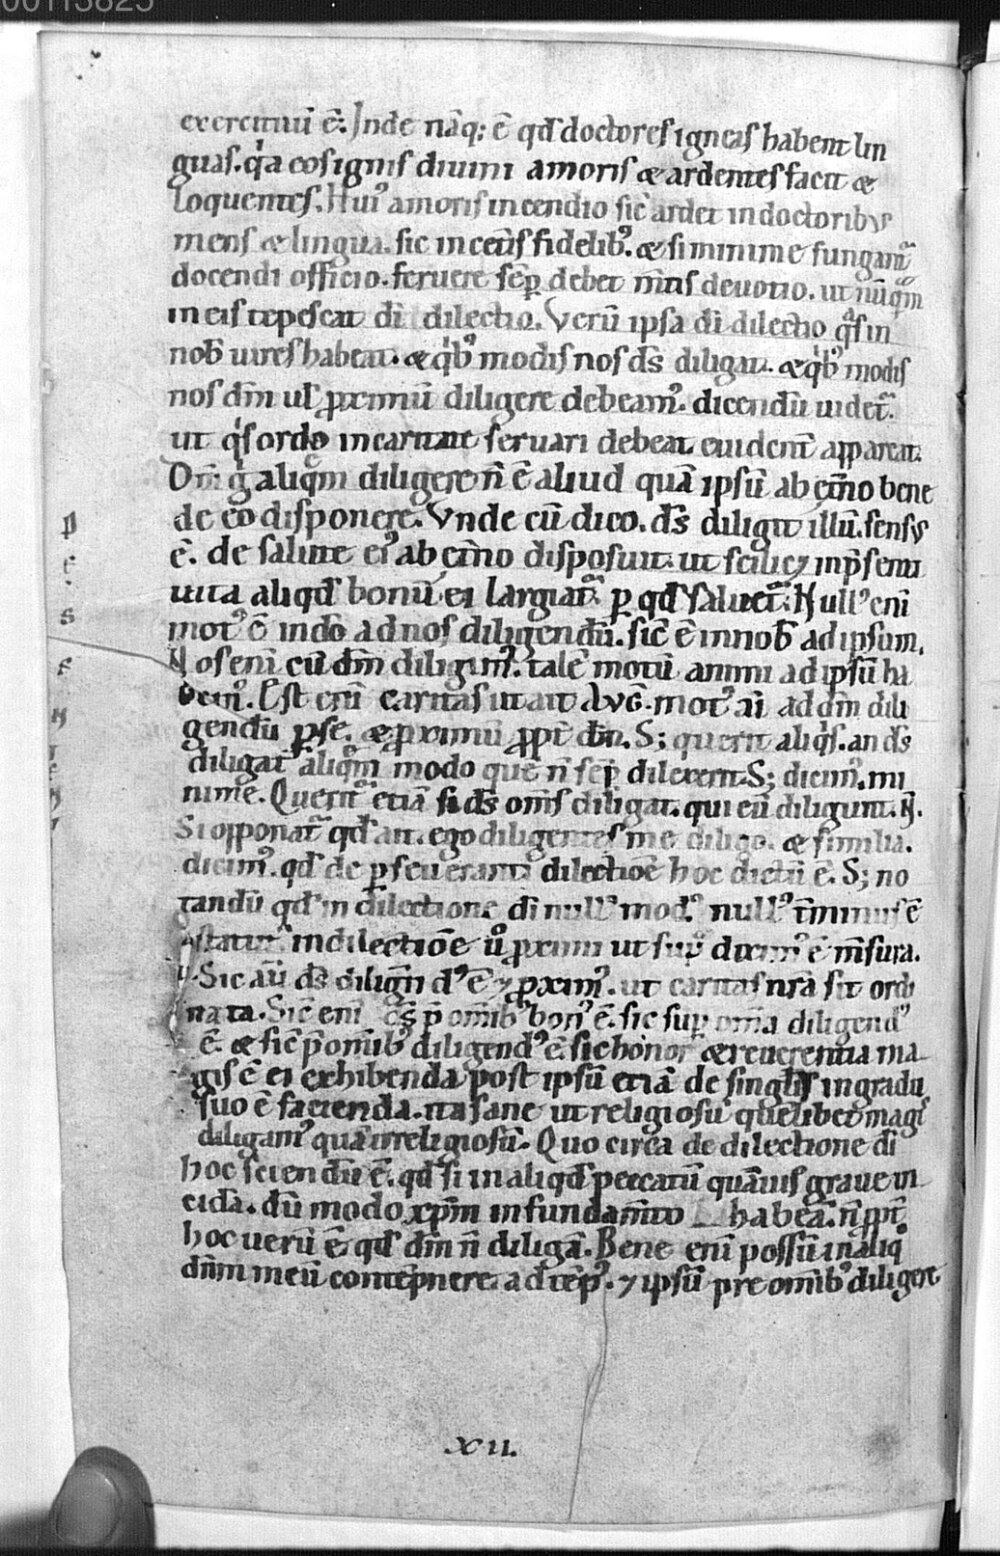 00113825
exercitiuū ē. Inde nāq; ē qd̄ doctores igneas habent lin
guas. qͥa eos ignis diuini amoris & ardentes facit &
loquentes. Huiꝰ amoris incendio sic ardet in doctoribus
mens & lingua. sic incet̄is fidelibꝰ. & si minime fungant᷑
docendi officio. feruere sēꝑ debet m̄tis deuotio. ut nūqͣm
in eis tepescat dī dilectio. Verū ipsa dī dilectio qͣs in
nob̄ uires habeat. & qͥbꝰ modis nos ds̄ diligat. & qͥbꝰ modis
nos dm̄ ul̄ ꝓximū diligere debeamꝰ. dicendū uidet᷑.
ut qͥs ordo in caritate seruari debeat euident̄ appareat.
Dm̄ gͦ aliqͣm diligere n̄ ē aliud quā ipsū ab et̄no bene
de eo disponere. Vnde cū dico. ds̄ diligit illū. sensus
ē. de salute eiꝰ ab et̄no disposuit. ut scilicꝫ in p̄senti
uita aliqd̄ bonū ei largiat᷑. ꝑ qd̄ saluet᷑. Nullꝰ enī
motꝰ ē in dō ad nos diligendū. sic̄ ē in nob̄ ad ipsum.
Nos enī cū dm̄ diligimꝰ. talē motū animi ad ipsū ha
bemꝰ. Est enī caritas ut ait AVḠ. motꝰ aī ad dm̄ dili
gendū ꝑ se. & ꝓximū ꝓpt̄ dm̄. S; querit aliqͥs. an ds̄
diligat aliqͣm modo quē n̄ sēꝑ dilexerit. S; dicimꝰ. mi
nime. Querit᷑ etiā si ds̄ om̄s diligat. qui eū diligunt. N̄.
Si opponat᷑ qd̄ ait. ego diligentes me diligo. & similia.
dicimꝰ. qd̄ de ꝑseueranti dilectiōe hoc dictū ē. S; no
tandū qd̄ in dilectione dī nullꝰ modꝰ nullꝰ t̄minus ē
in dilectiōe uͦ ꝓximi ut supͣ diximꝰ ē m̄sura.
Sic aū ds̄ diligēdꝰ ē ⁊ ꝓximꝰ. ut caritas nr̄a sit ordi
nata. Sic̄ enī ds̄ p̄ omībꝰ bonꝰ ē. sic suꝑ om̄ia diligendꝰ
ē. & sic̄ p̄ omībꝰ diligendꝰ ē. sic honor & reuerentia ma
gis ē ei exhibenda. post ipsū etiā de singl̄is in gradu
suo ē facienda. ita sane ut religiosū quēlibet magis
diligamꝰ quā irreligiosū. Quo circa de dilectione dī
hoc sciendū ē. qd̄ si in aliqd̄ peccatū quāuis graue in
cidā. dū modo xp̄m in fundam̄to habeā. n̄ ꝓpt̄
hoc uerū ē. qd̄ dm̄ n̄ diligā. Bene enī possū in aliqͦ
dn̄m meū contēpnere ad tēpꝰ. ⁊ ipsū pre omībꝰ diligere
xii.